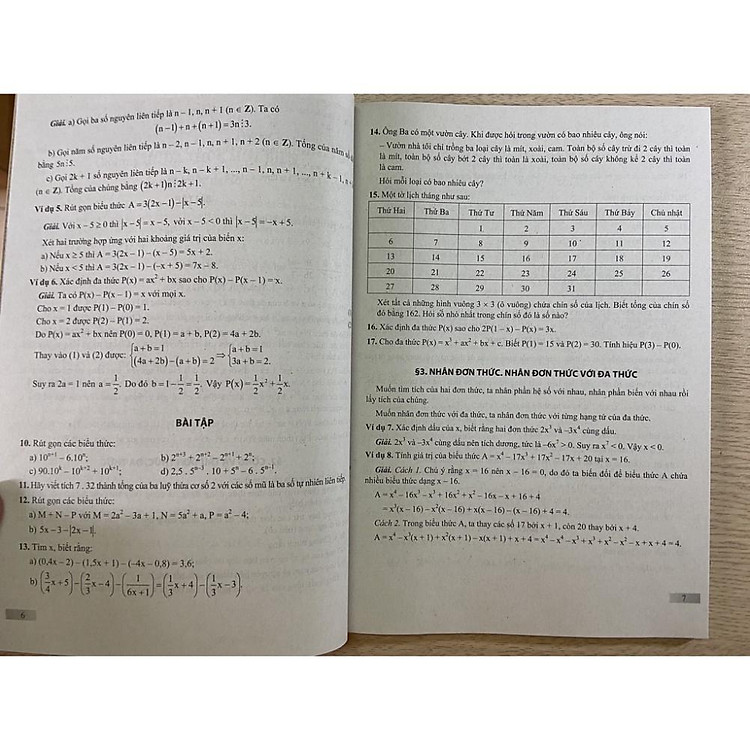 Giải. a) Gọi ba số nguyên liên tiếp là n – 1, n, n + 1 (n ∈ Z). Ta có
(n–1)+n+(n+1)=3n⋮3.
b) Gọi năm số nguyên liên tiếp là n – 2, n – 1, n, n + 1, n + 2 (n ∈ Z). Tổng của năm số
bằng 5n⋮5.
c) Gọi 2k + 1 số nguyên liên tiếp là n – k, n – k + 1, ..., n – 1, n, n + 1, ..., n + k – 1, n +
(n ∈ Z). Tổng của chúng bằng (2k+1)n⋮2k+1.
Ví dụ 5. Rút gọn biểu thức A=3(2x–1)–|x–5|.
Giải. Với x–5≥0 thì |x–5|=x–5, với x–5<0 thì |x–5|=–x+5.
Xét hai trường hợp ứng với hai khoảng giá trị của biến x:
a) Nếu x≥5 thì A=3(2x–1)–(x–5)=5x+2.
b) Nếu x<5 thì A=3(2x–1)–(–x+5)=7x–8.
Ví dụ 6. Xác định đa thức P(x)=ax²+bx sao cho P(x)–P(x–1)=x.
Giải. Ta có P(x)–P(x–1)=x với mọi x.
Cho x=1 được P(1)–P(0)=1.
Cho x=2 được P(2)–P(1)=2.
Do P(x)=ax²+bx nên P(0)=0, P(1)=a+b, P(2)=4a+2b.
Thay vào (1) và (2) được: {a+b=1 (4a+2b)–(a+b)=2 ⇒ {a+b=1 3a+b=2.
Suy ra 2a=1 nên a=1/2. Do đó b=1–1/2=1/2. Vậy P(x)=1/2x²+1/2x.
BÀI TẬP
10. Rút gọn các biểu thức:
a) 10ⁿ⁺¹–6.10ⁿ; b) 2ⁿ⁺³+2ⁿ⁺²–2ⁿ⁺¹+2ⁿ;
c) 90.10ᵏ–10ᵏ⁺²+10ᵏ⁺¹; d) 2,5.5ⁿ⁻³.10+5ⁿ–6.5ⁿ⁻¹.
11. Hãy viết tích 7.32 thành tổng của ba luỹ thừa cơ số 2 với các số mũ là ba số tự nhiên liên tiếp.
12. Rút gọn các biểu thức:
a) M+N–P với M=2a²–3a+1, N=5a²+a, P=a²–4;
b) 5x–3–|2x–1|.
13. Tìm x, biết rằng:
a) (0,4x–2)–(1,5x+1)–(–4x–0,8)=3,6;
b) (3/4x+5)–(2/3x–4)–(1/6x+1)=(1/3x+4)–(1/3x–3).
6
14. Ông Ba có một vườn cây. Khi được hỏi trong vườn có bao nhiêu cây, ông nói:
– Vườn nhà tôi chỉ trồng ba loại cây là mít, xoài, cam. Toàn bộ số cây trừ đi 2 cây thì toàn
là mít, toàn bộ số cây bớt 2 cây thì toàn là xoài, toàn bộ số cây không kể 2 cây thì toàn
là cam.
Hỏi mỗi loại có bao nhiêu cây?
15. Một tờ lịch tháng như sau:
Thứ Hai Thứ Ba Thứ Tư Thứ Năm Thứ Sáu Thứ Bảy Chủ nhật
1 2 3 4 5
6 7 8 9 10 11 12
13 14 15 16 17 18 19
20 21 22 23 24 25 26
27 28 29 30 31
Xét tất cả những hình vuông 3 × 3 (ô vuông) chứa chín số của lịch. Biết tổng của chín số
đó bằng 162. Hỏi số nhỏ nhất trong chín số đó là số nào?
16. Xác định đa thức P(x) sao cho 2P(1–x)–P(x)=3x.
17. Cho đa thức P(x)=x³+ax²+bx+c. Biết P(1)=15 và P(2)=30. Tính hiệu P(3)–P(0).
§3. NHÂN ĐƠN THỨC. NHÂN ĐƠN THỨC VỚI ĐA THỨC
Muốn tìm tích của hai đơn thức, ta nhân phần hệ số với nhau, nhân phần biến với nhau rồi
lấy tích của chúng.
Muốn nhân đơn thức với đa thức, ta nhân đơn thức với từng hạng tử của đa thức.
Ví dụ 7. Xác định dấu của x, biết rằng hai đơn thức 2x³ và –3x⁴ cùng dấu.
Giải. 2x³ và –3x⁴ cùng dấu nên tích dương, tức là –6x⁷>0. Suy ra x⁷<0. Vậy x<0.
Ví dụ 8. Tính giá trị của biểu thức A=x⁴–17x³+17x²–17x+20 tại x=16.
Giải. Cách 1. Chú ý rằng x=16 nên x–16=0, do đó ta biến đổi để biểu thức A chứa
nhiều biểu thức dạng x–16.
A=x⁴–16x³–x³+16x²+x²–16x–x+16+4
=x³(x–16)–x²(x–16)+x(x–16)–(x–16)+4=4.
Cách 2. Trong biểu thức A, ta thay các số 17 bởi x+1, còn 20 thay bởi x+4.
A=x⁴–x³(x+1)+x²(x+1)–x(x+1)+x+4=x⁴–x⁴–x³+x³+x²–x²–x+x+4=4.
7